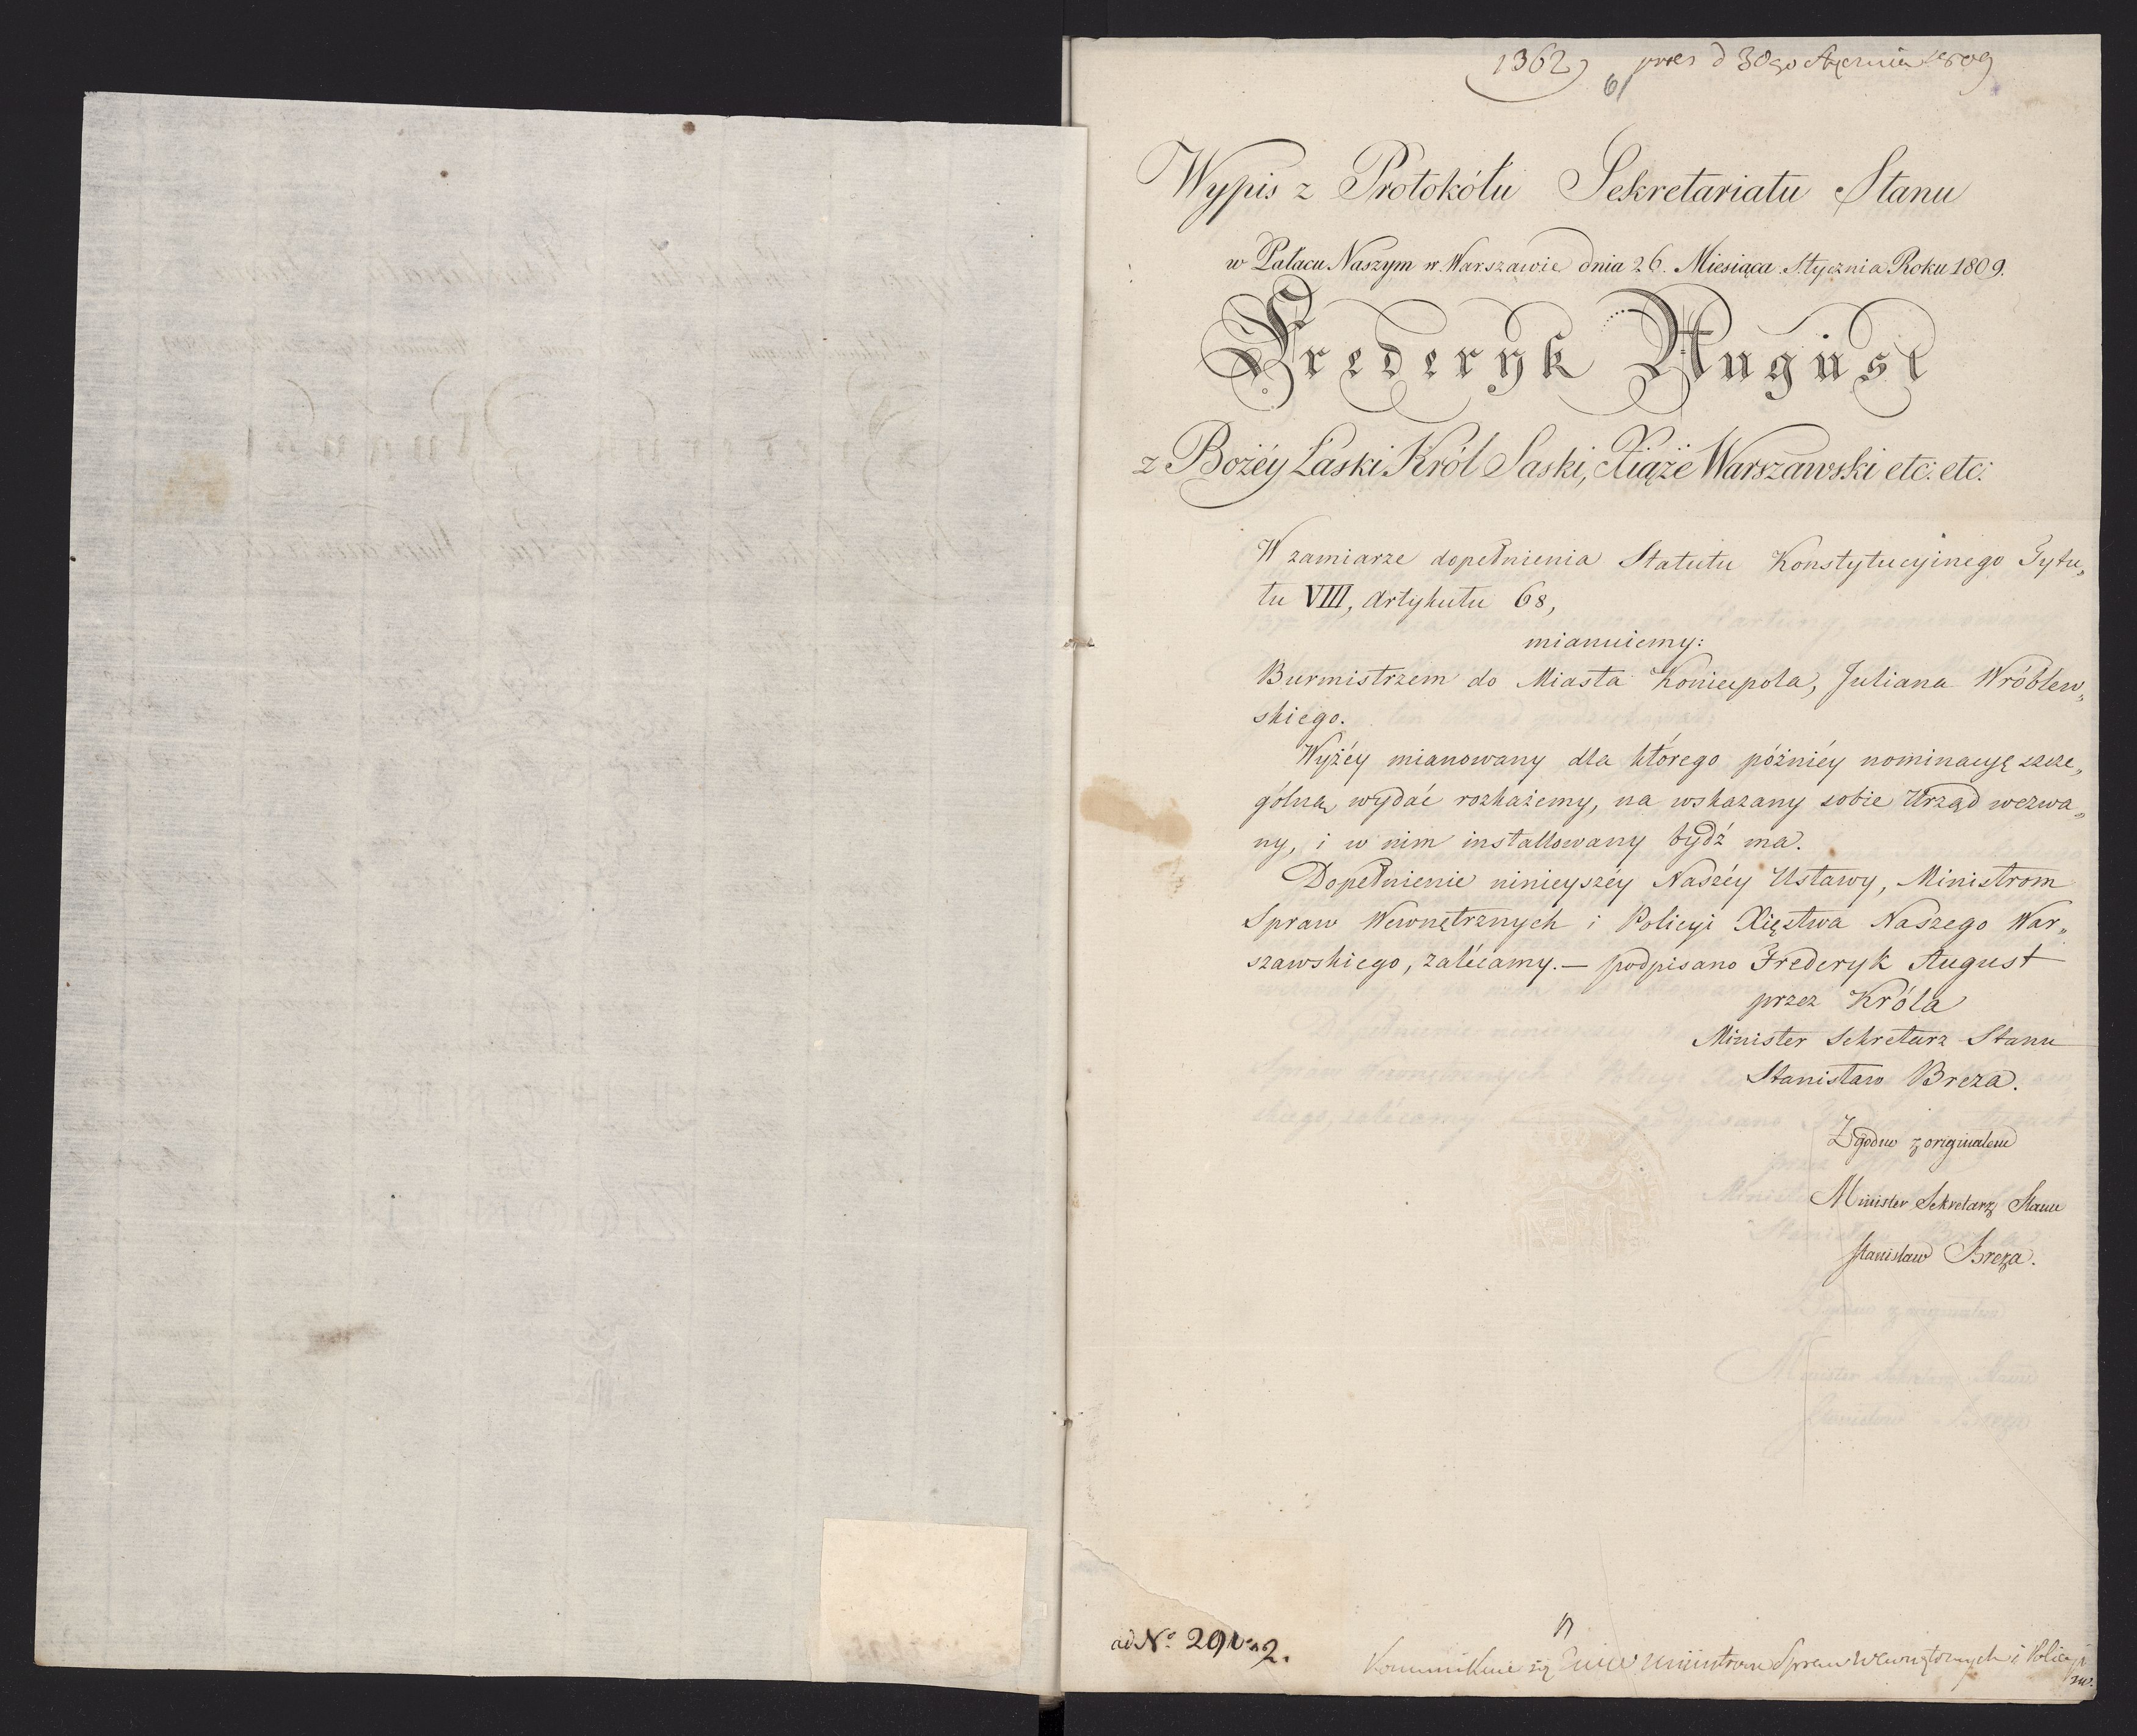 1362) pres d 30go Stycznia 1809
6/
Wypis z Protokółu Sekretariatu Stanu
w Pałacu Naszym w Warszawie dnia 26. Miesiąca Stycznia Roku 1809.
Frederyk August
z Bożéy Łaski Król Saski, Xiąże Warszawski etc: etc:
W zamiarze dopełnienia Statutu Konstytucyjnego Tytu„
łu VIII, Artykułu 68,
mianuiemy:
Burmistrzem do Miasta Koniecpola, Juliana Wróblew„
skiego.
Wyżéy mianowany dla którego późniéy nominacyę szcze„
gólną wydać rozkażemy, na wskazany sobie Urząd wezwa„
ny, i w nim installowany bydź ma.
Dopełnienie ninieyszéy Naszéy Ustawy, Ministrom
Spraw Wewnętrznych i Policyi Xięstwa Naszego War„
szawskiego, zalécamy. — podpisano Frederyk August
przez Króla
Minister Sekretarz Stanu
Stanisław Breza.
Zgodno z originałem
Minister Sekretarz Stanu
Stanisław Breza.
ad No. 291
Kommunikuie się Ministrom Spraw Wewnętrznych i Policyi